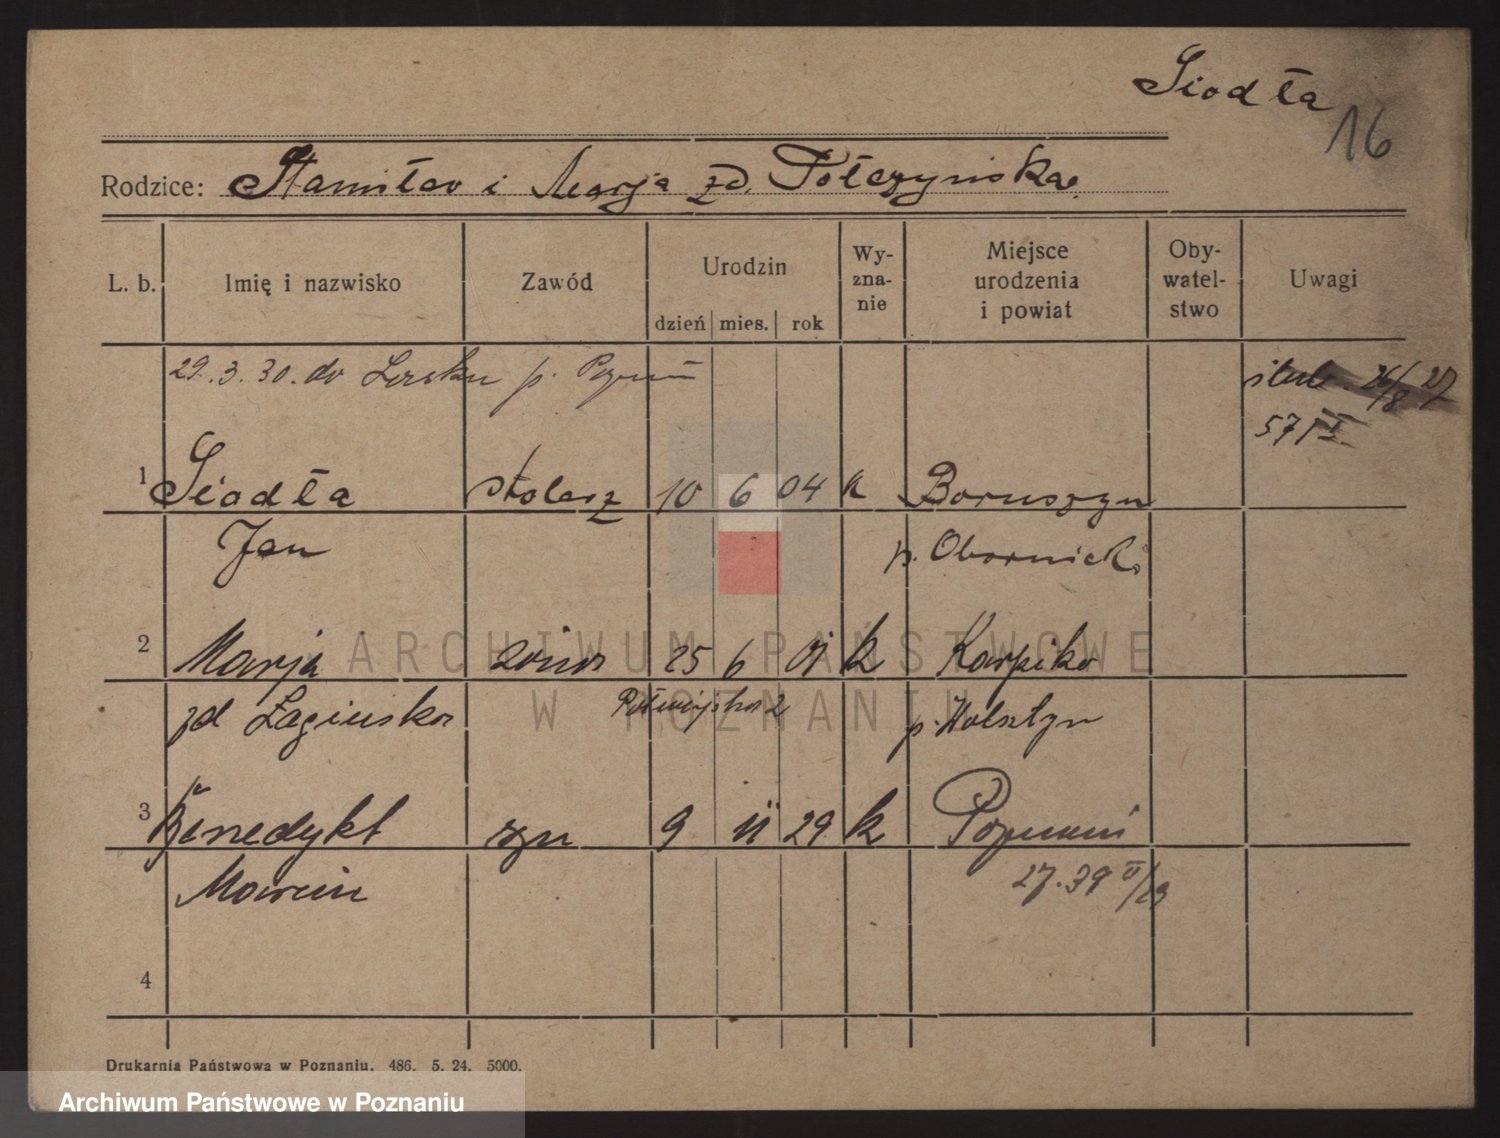 Siodła
16
Rodzice: Stanisław i Marja zd. Tołczyńska
L. b. Imię i nazwisko Zawód Urodzin dzień mies. rok Wy-zna-nie Miejsce urodzenia i powiat Oby-watel-stwo Uwagi
29.3.30. do p. Poznań
ślub 26/8 27
571 I
1 Siodła stolarz 10 6 04 k Boruszyn
Jan p. Oborniki
2 Marja żona 25 6 01 k Karpiko
zd Łagińska p. Wolsztyn
3 Benedykt syn 9 11 29 k Poznań
Marcin 27.39 II/29
4
Drukarnia Państwowa w Poznaniu. 486. 5. 24. 5000.
ARCHIWUM PAŃSTWOWE
W POZNANIU
Archiwum Państwowe w Poznaniu